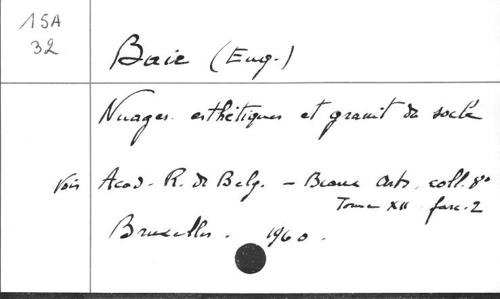 15A
32
Baie (Eug.)
Nuages esthétiques et granit du socle
Vois Acad. R. de Belg. - Beaux Arts, coll. 8°
Tome XII fasc. 2
Bruxelles. 1960.